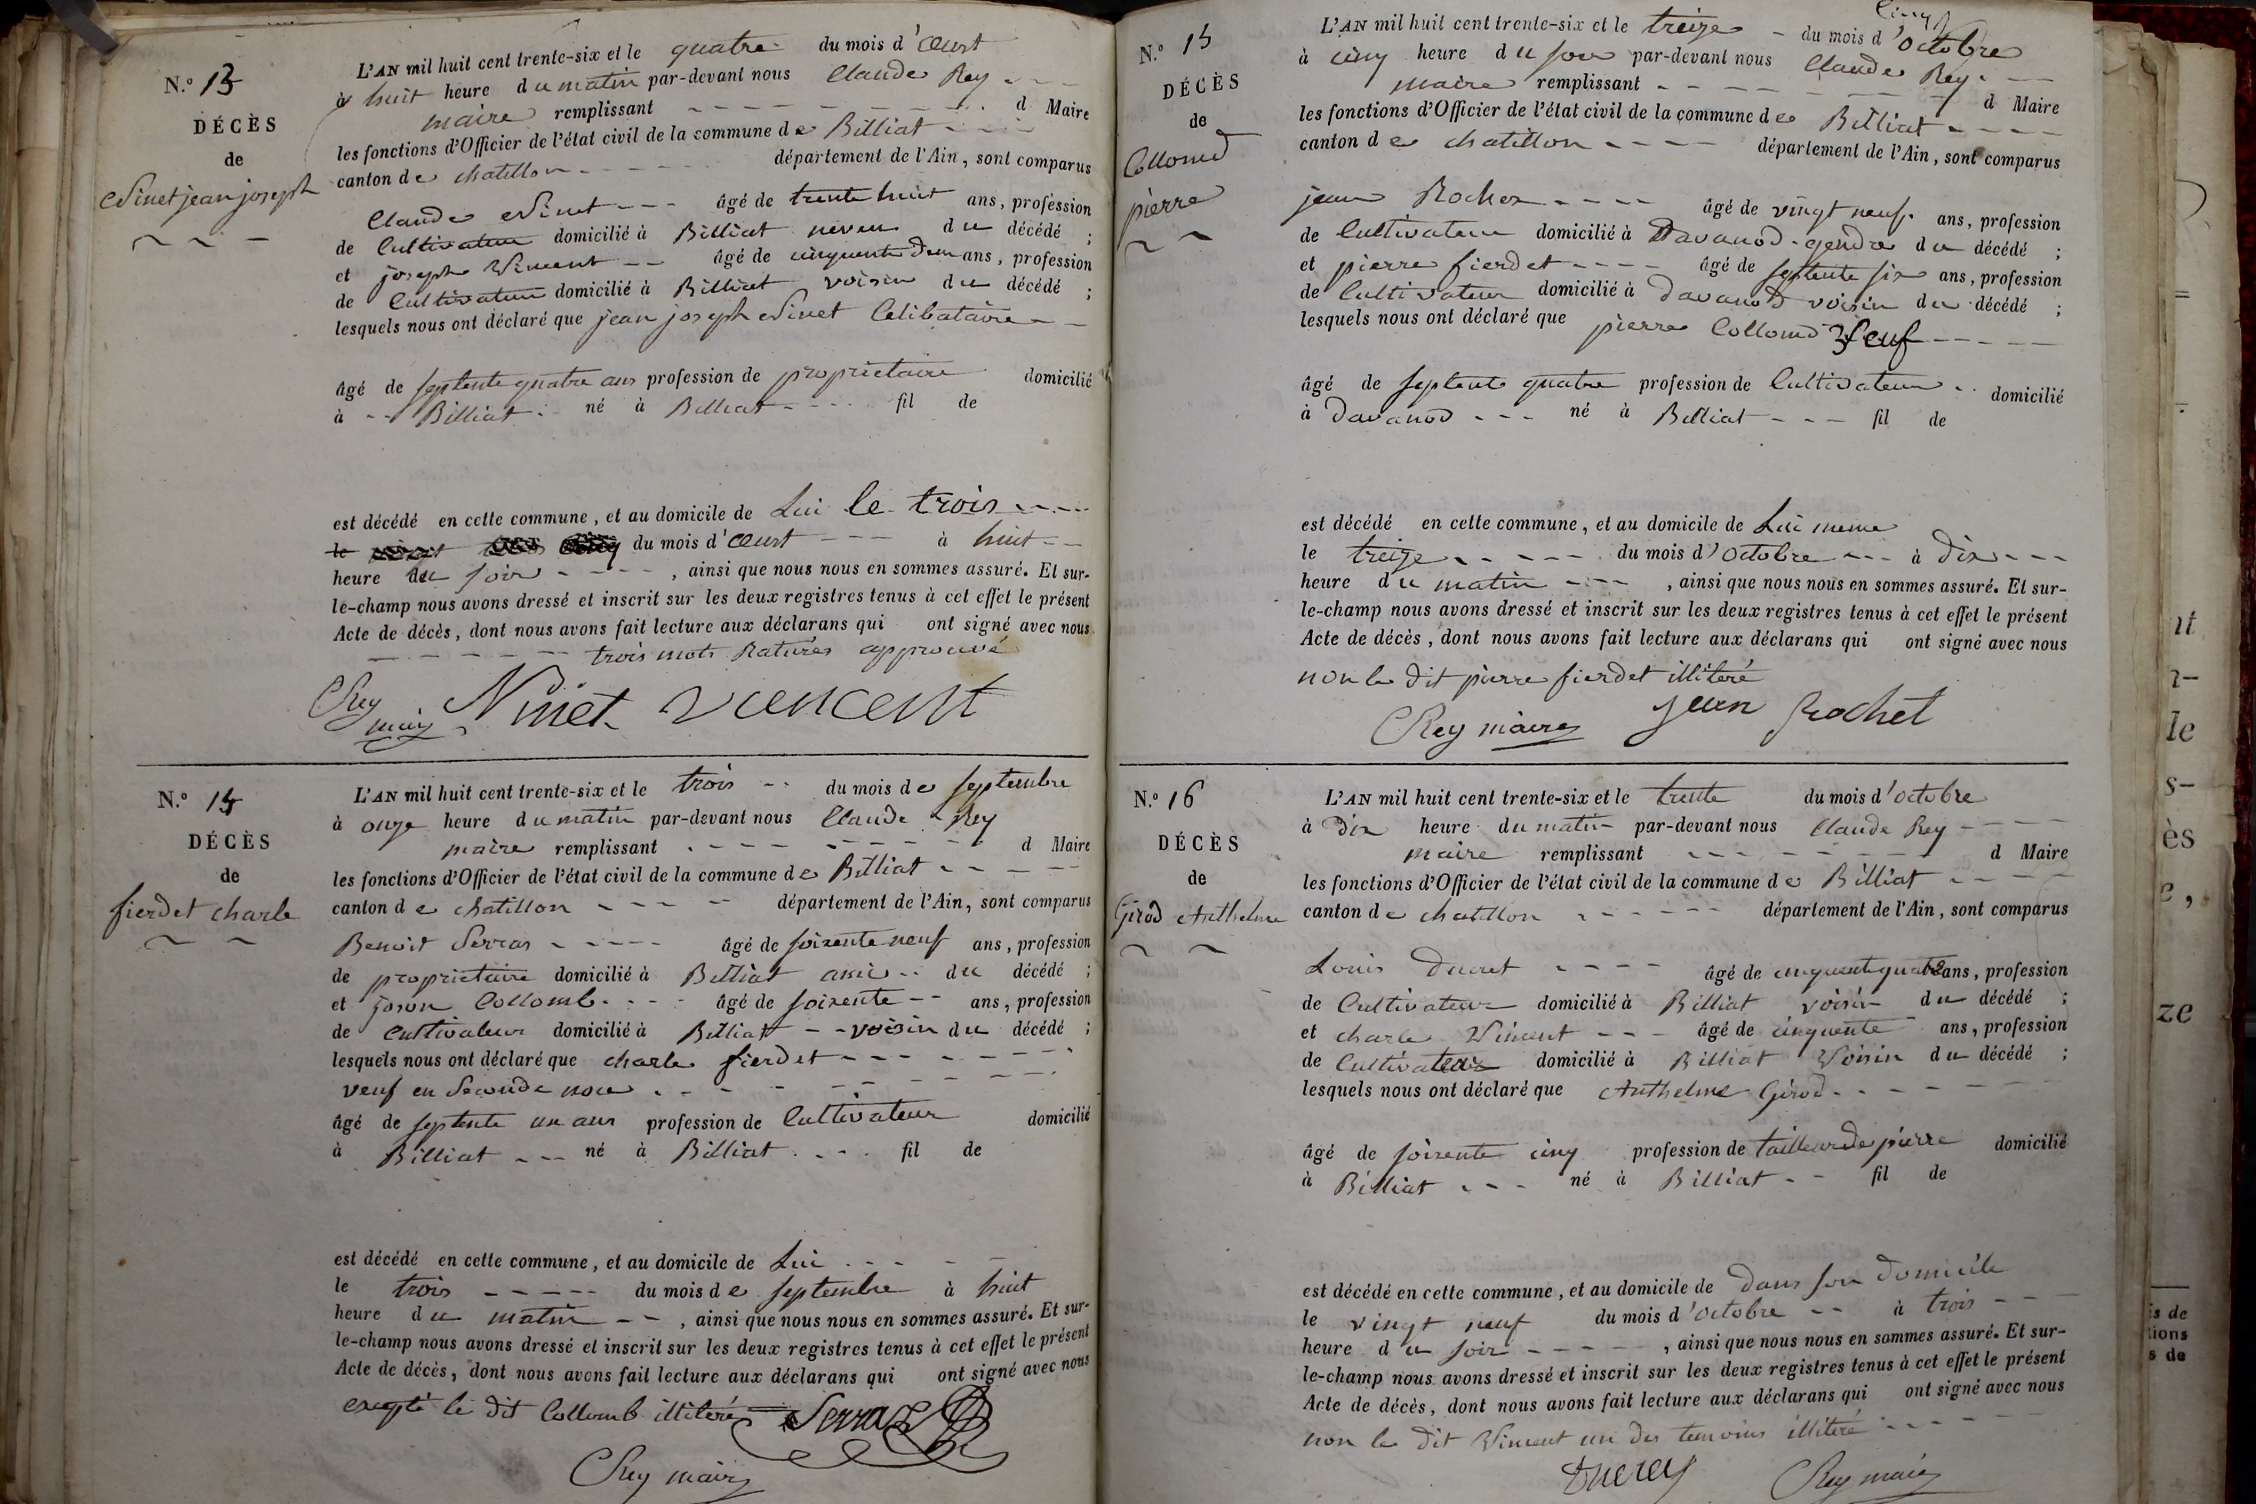 N.º 13
DÉCÈS
de
Ninet jean joseph
L'AN mil huit cent trente-six et le quatre du mois d'aust
à huit heure du matin par-devant nous Claude Rey
maire remplissant d Maire
les fonctions d'Officier de l'état civil de la commune de Billiat
canton de chatillon département de l'Ain, sont comparus
Claude Ninet âgé de trente huit ans, profession
de Cultivateur domicilié à Billiat neveu du décédé ;
et joseph Vincent âgé de cinquente deux ans, profession
de Cultivateur domicilié à Billiat voisin du décédé ;
lesquels nous ont déclaré que jean joseph Ninet Célibataire
âgé de septente quatre ans profession de propriétaire domicilié
à Billiat né à Billiat fil de
est décédé en cette commune, et au domicile de Lui le trois
le du mois d'aust à huit
heure du soir , ainsi que nous nous en sommes assuré. Et sur-
le-champ nous avons dressé et inscrit sur les deux registres tenus à cet effet le présent
Acte de décès, dont nous avons fait lecture aux déclarans qui ont signé avec nous
trois mots raturés approuvé
CRey maire Ninet vencent
N.º 14
DÉCÈS
de
fierdet charle
L'AN mil huit cent trente-six et le trois du mois de septembre
à onze heure du matin par-devant nous Claude Rey
maire remplissant d Maire
les fonctions d'Officier de l'état civil de la commune de Billiat
canton de chatillon département de l'Ain, sont comparus
Benoit Serras âgé de soixente neuf ans, profession
de propriétaire domicilié à Billiat ami du décédé ;
et Collomb âgé de soixente ans, profession
de Cultivateur domicilié à Billiat voisin du décédé ;
lesquels nous ont déclaré que charle fierdet
veuf en Seconde noce
âgé de septente un ans profession de Cultivateur domicilié
à Billiat né à Billiat fil de
est décédé en cette commune, et au domicile de Lui
le trois du mois de septembre à huit
heure du matin , ainsi que nous nous en sommes assuré. Et sur-
le-champ nous avons dressé et inscrit sur les deux registres tenus à cet effet le présent
Acte de décès, dont nous avons fait lecture aux déclarans qui ont signé avec nous
excepté le dit Collomb illitéré Serraz
CRey maire
N.º 15
DÉCÈS
de
Collomd
pierre
L'AN mil huit cent trente-six et le treize du mois d'octobre
à cinq heure du soir par-devant nous Claude Rey
maire remplissant d Maire
les fonctions d'Officier de l'état civil de la commune de Billiat
canton de chatillon département de l'Ain, sont comparus
jean Rochez âgé de vingt neuf ans, profession
de Cultivateur domicilié à Davanod gendre du décédé ;
et pierre fierdet âgé de septente six ans, profession
de Cultivateur domicilié à Davanod voisin du décédé ;
lesquels nous ont déclaré que pierre Collomd Veuf
âgé de septente quatre profession de Cultivateur domicilié
à Davanod né à Billiat fil de
est décédé en cette commune, et au domicile de Lui meme
le treize du mois d'octobre à dix
heure du matin , ainsi que nous nous en sommes assuré. Et sur-
le-champ nous avons dressé et inscrit sur les deux registres tenus à cet effet le présent
Acte de décès, dont nous avons fait lecture aux déclarans qui ont signé avec nous
non le dit pierre fierdet illitéré
CRey maire jean rochet
N.º 16
DÉCÈS
de
Girod Anthelme
L'AN mil huit cent trente-six et le trente du mois d'octobre
à dix heure du matin par-devant nous Claude Rey
maire remplissant d Maire
les fonctions d'Officier de l'état civil de la commune de Billiat
canton de chatillon département de l'Ain, sont comparus
Louis Ducret âgé de cinquente quatre ans, profession
de Cultivateur domicilié à Billiat voisin du décédé ;
et charle Vincent âgé de cinquente ans, profession
de Cultivateur domicilié à Billiat Voisin du décédé ;
lesquels nous ont déclaré que Anthelme Girod
âgé de soixente cinq profession de tailleur de pierre domicilié
à Billiat né à Billiat fil de
est décédé en cette commune, et au domicile de dans son domicile
le vingt neuf du mois d'octobre à trois
heure du soir , ainsi que nous nous en sommes assuré. Et sur-
le-champ nous avons dressé et inscrit sur les deux registres tenus à cet effet le présent
Acte de décès, dont nous avons fait lecture aux déclarans qui ont signé avec nous
non le dit Vincent un des temoins illitéré
CRey maire